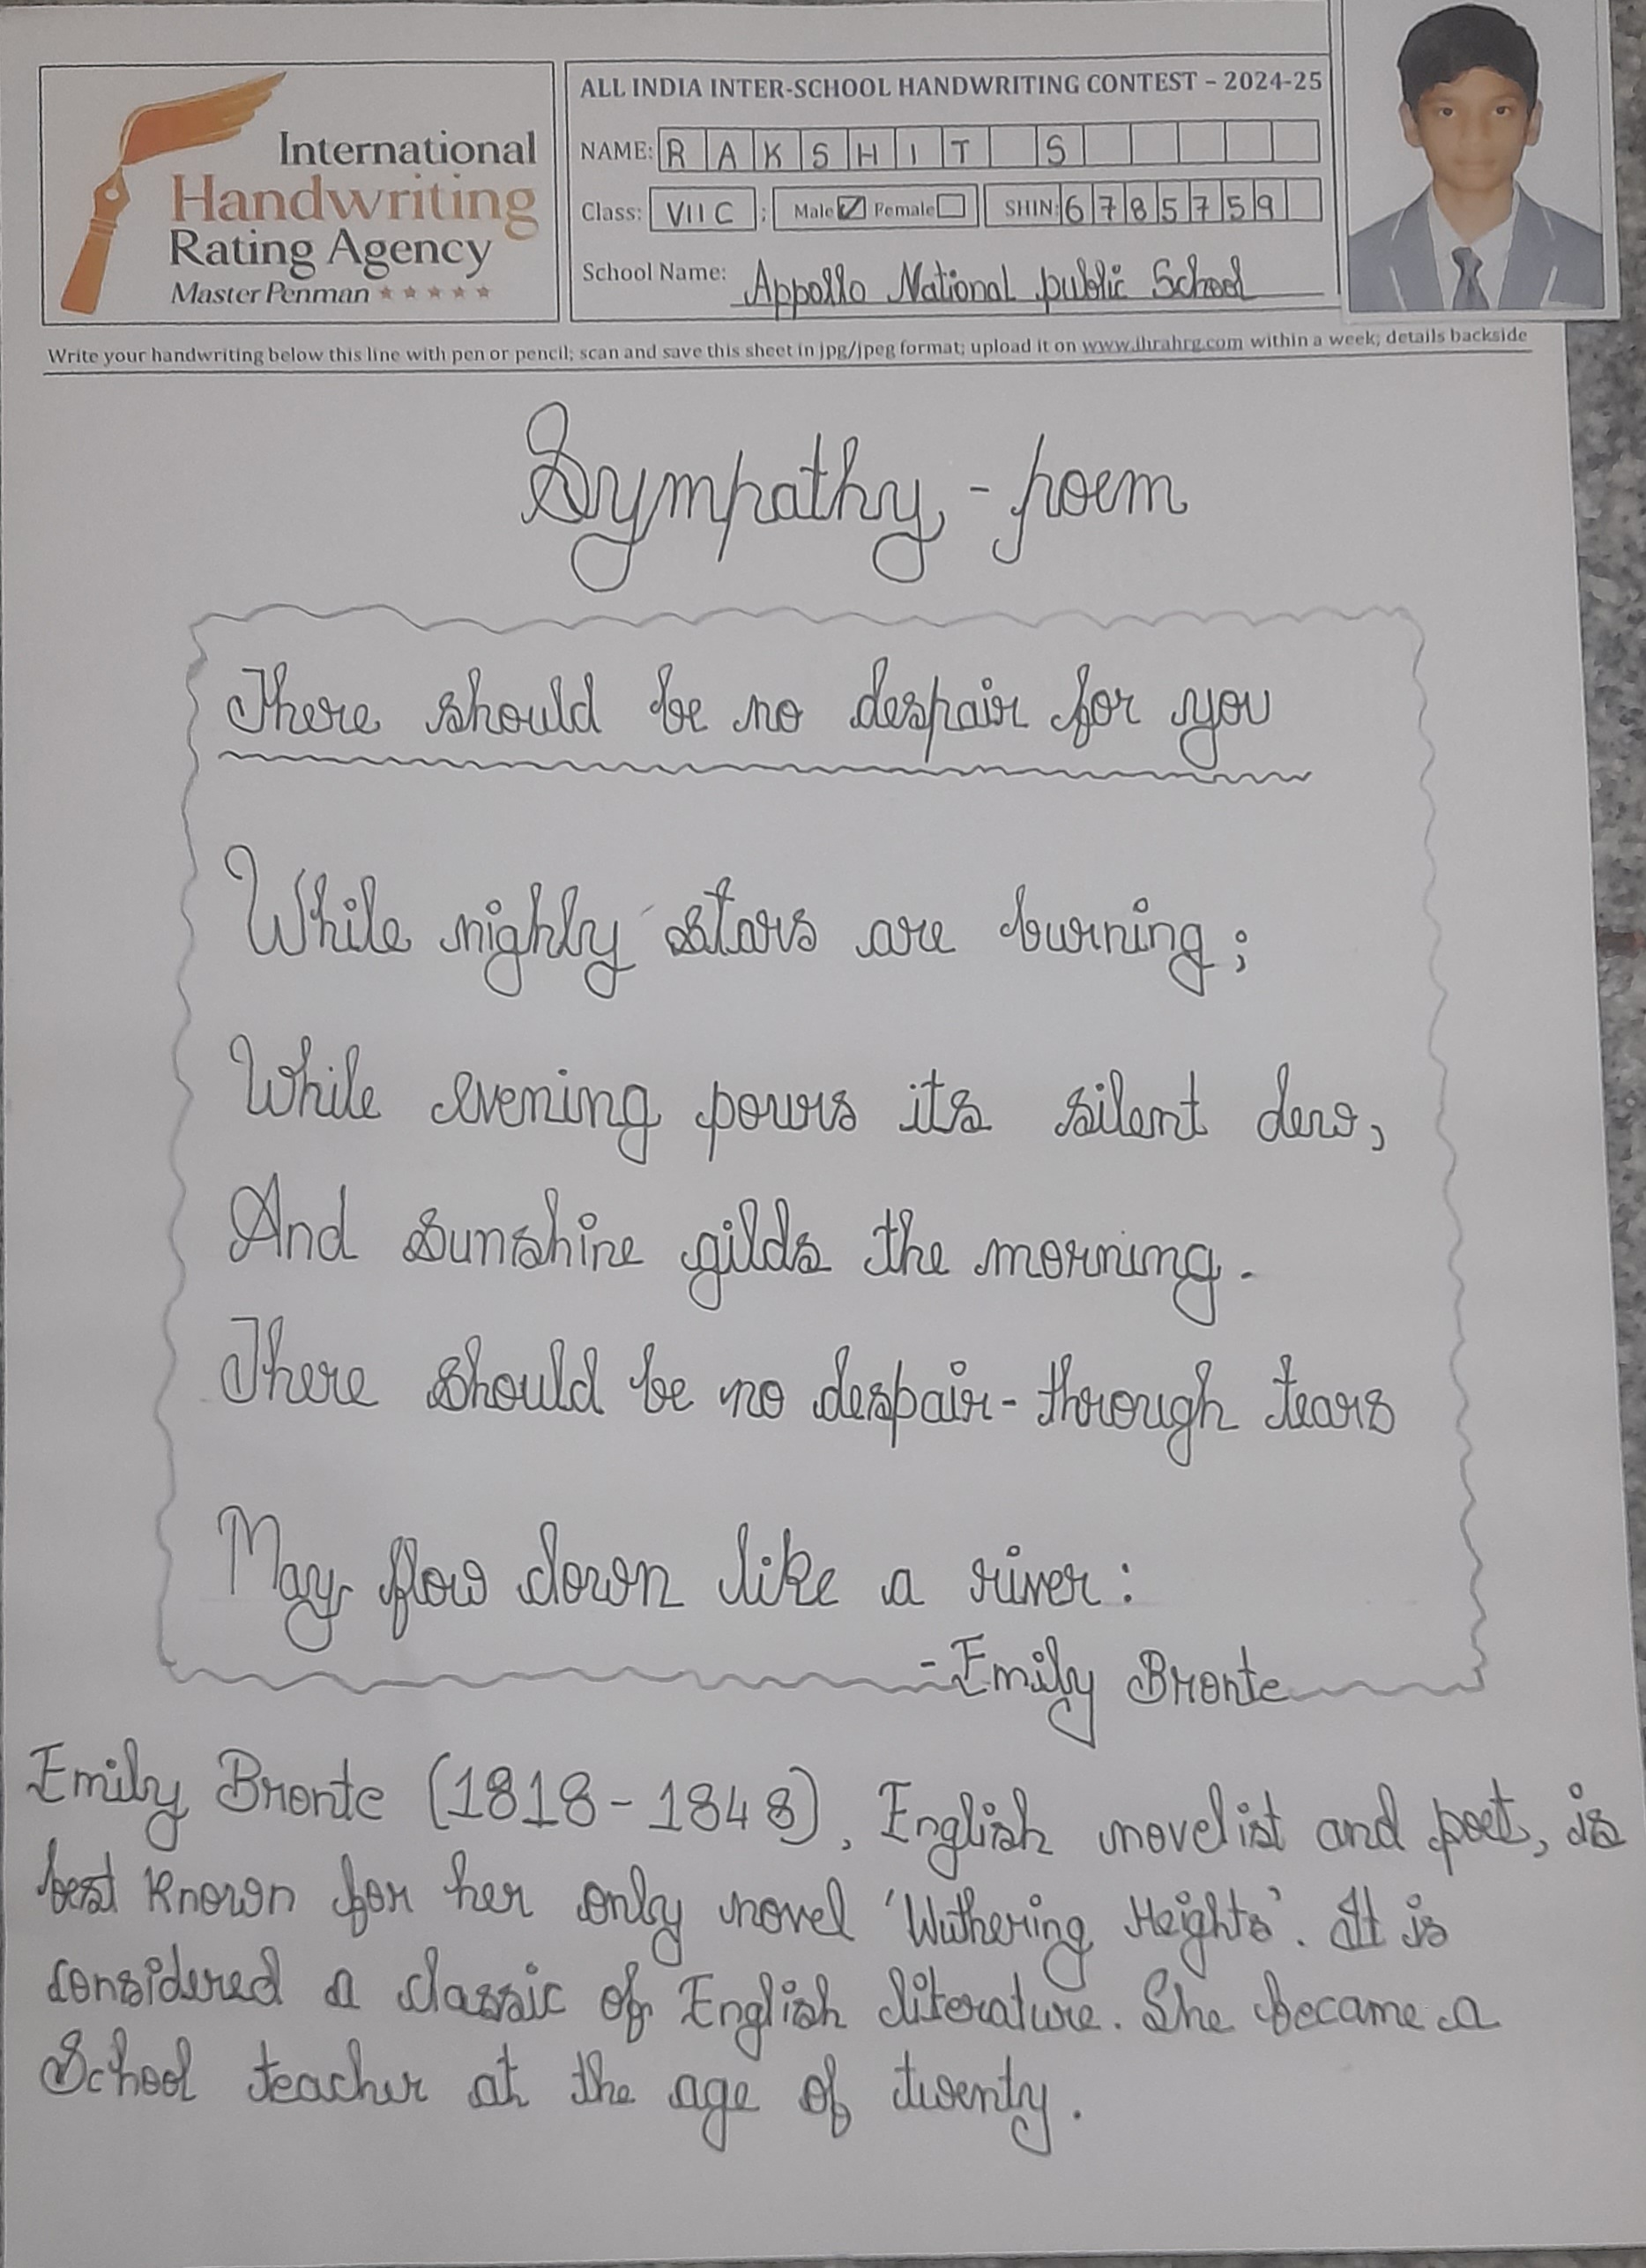 International
Handwriting
Rating Agency
Master Penman ★★★★★
ALL INDIA INTER-SCHOOL HANDWRITING CONTEST – 2024-25
NAME: RAKSHIT S
Class: VII C ; Male ☑ Female ☐ SHIN: 6785759
School Name: Appollo National public School
Write your handwriting below this line with pen or pencil; scan and save this sheet in jpg/jpeg format; upload it on www.ihrahrg.com within a week; details backside
Sympathy - poem
There should be no despair for you
While nighly stars are burning;
While evening pours its silent dew,
And sunshine gilds the morning.
There should be no despair - through tears
May flow down like a river:
- Emily Bronte
Emily Bronte (1818 - 1848), English novelist and poet, is
best known for her only novel 'Wuthering Heights'. It is
considered a classic of English literature. She became a
School teacher at the age of twenty.